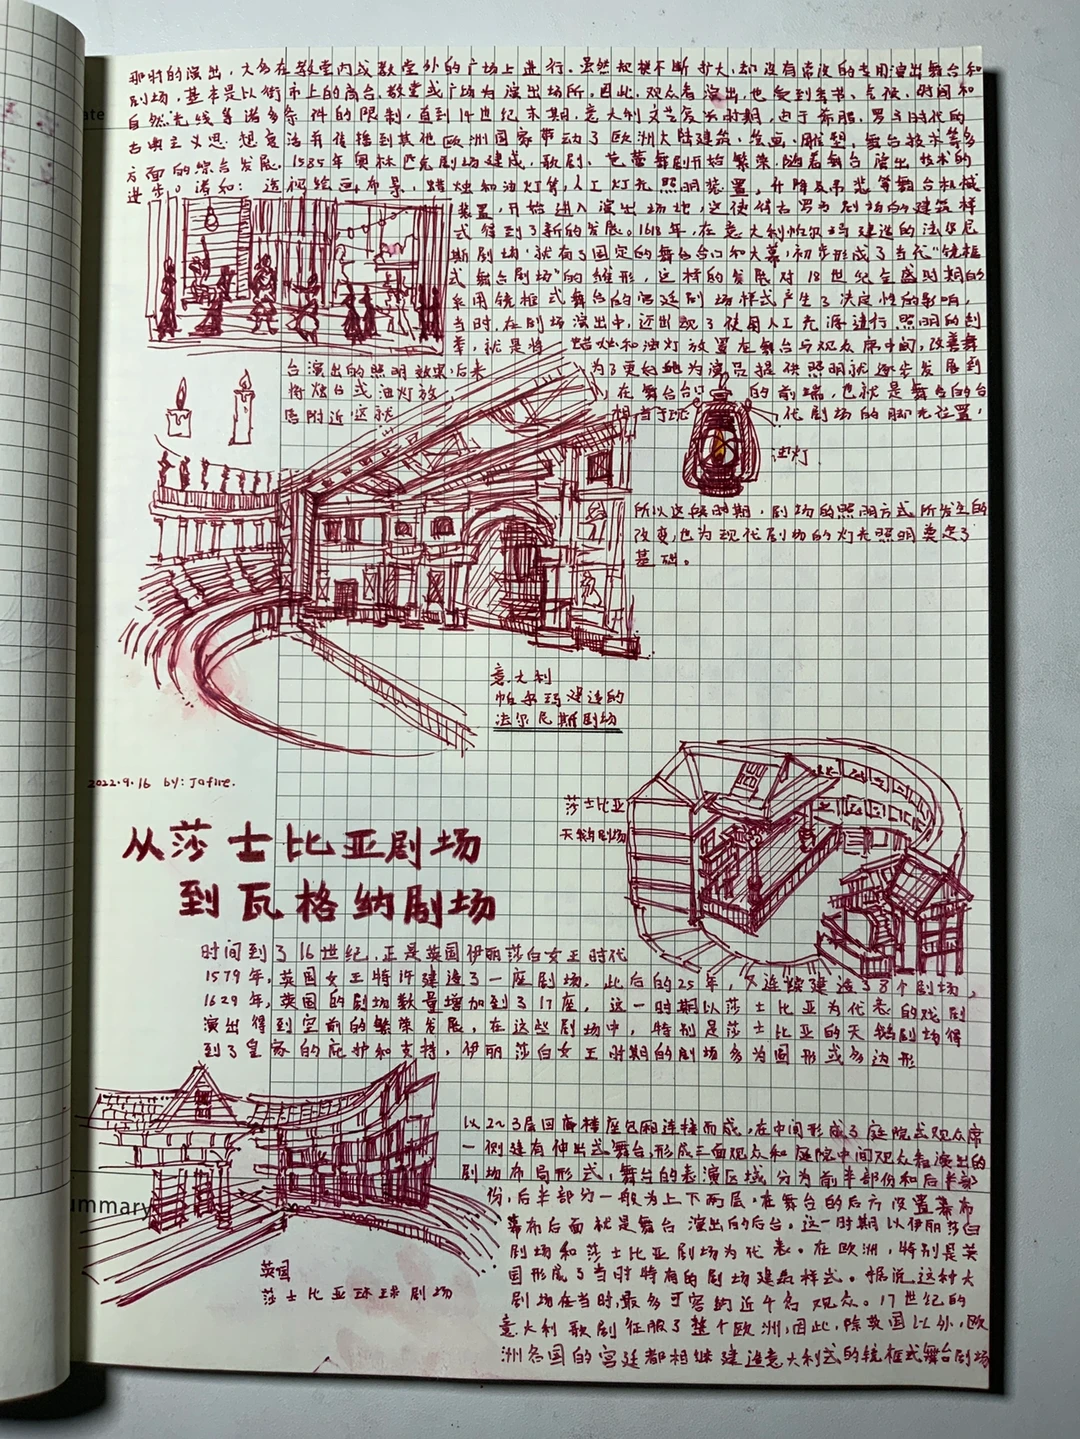 那时的演出，大多在教堂内或教堂外的广场上进行。虽然规模不断扩大，却没有常设的专用演出舞台和
剧场，基本是以街市上的高台、教堂或广场为演出场所，因此，观众看演出，也受到季节、气候、时间和
自然光线等诸多条件的限制，直到14世纪末期，意大利文艺复兴时期，由于希腊、罗马时代的
古典主义思想复活并传播到其他欧洲国家带动了欧洲大陆建筑、绘画、雕塑、舞台技术等多
方面的综合发展。1585年奥林匹克剧场建成，歌剧、芭蕾舞剧开始繁荣，随着舞台演出技术的
进步。诸如：透视绘画布景，蜡烛和油灯等人工灯光照明装置，升降及吊装等舞台机械
装置，开始进入演出场地，这使得古罗马剧场的建筑样
式得到了新的发展。1618年，在意大利帕尔玛建造的法尔尼
斯剧场，就有了固定的舞台台口和大幕，初步形成了当代“镜框
式舞台剧场”的雏形，这样的发展对18世纪全盛时期的
采用镜框式舞台的宫廷剧场样式产生了决定性的影响，
当时，在剧场演出中，还出现了使用人工光源进行照明的剧
幸，就是将蜡烛和油灯放置在舞台与观众席中间，改善舞
台演出的照明效果，后来为了更好地为演员提供照明就逐步发展到
将烛台或油灯放在舞台台口的前端，也就是舞台的台
唇附近这就相当于现代剧场的脚光位置，
油灯
所以这段时期，剧场的照明方式所发生的
改变，也为现代剧场的灯光照明奠定了
基础。
意大利
帕尔玛建造的
法尔尼斯剧场
2022.9.16 by: Jafire.
莎士比亚
天鹅剧场
从莎士比亚剧场
到瓦格纳剧场
时间到了16世纪，正是英国伊丽莎白女王时代
1579年，英国女王特许建造了一座剧场，此后的25年，又连续建造了8个剧场，
1629年，英国的剧场数量增加到了17座，这一时期以莎士比亚为代表的戏剧
演出得到空前的繁荣发展，在这些剧场中，特别是莎士比亚的天鹅剧场得
到了皇家的庇护和支持，伊丽莎白女王时期的剧场多为圆形或多边形
以2~3层回廊楼座包厢连接而成，在中间形成了庭院式观众席
一侧建有伸出式舞台，形成三面观众和庭院中间观众看演出的
剧场布局形式，舞台的表演区域，分为前半部份和后半部
份，后半部分一般为上下两层，在舞台的后方设置幕布
幕布后面就是舞台演出的后台。这一时期以伊丽莎白
剧场和莎士比亚剧场为代表。在欧洲，特别是英
国形成了当时特有的剧场建筑样式。据说，这种大
剧场在当时，最多可容纳近千名观众。17世纪的
意大利歌剧征服了整个欧洲，因此，除英国以外，欧
洲各国的宫廷都相继建造意大利式的镜框式舞台剧场
英国
莎士比亚环球剧场
ate
ummary